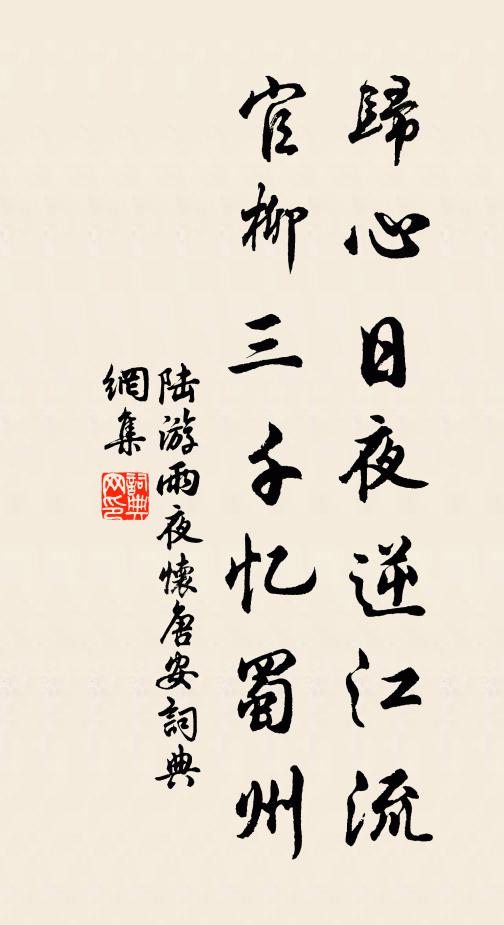 歸心日夜逆江流
官柳三千忆蜀州
陆游雨夜懷唐安詞典
網集
詞典网印